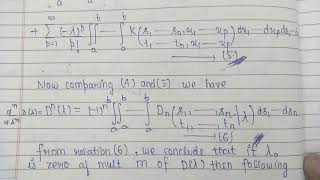 + ∞∑p=1 (-λ)^p / p! b∫a b∫a --- b∫a K(s1 --- sn, x1 --- xp / t1 --- tn, x1 --- xp) dx1 --- dxp ds1 ---
--- (5)
Now comparing (4) and (5) we have
d^n/dλ^n D(λ) = D^n(λ) = (-1)^n b∫a b∫a --- b∫a Dn(s1, --- sn / t1, --- tn | λ) ds1 --- dsn
--- (6)
from relation (6), we conclude that if λ0
is zero of mult m of D(λ) then following